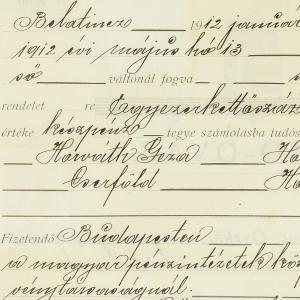 Belatincz 1912 január
1912 évi május hó 13
só váltónál fogva
rendelet re Egyezerkettőszáz
értéke készpénz tegye számolásba tudós
Horváth Géza Ho
Cserföld Ho
Fizetendő Budapesten
a magyar pénzintézetek köz
vénytársaságnál.